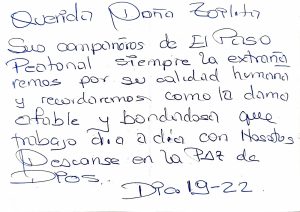 Querida Doña Zorlita
Sus compañeros de El Paso
Peatonal siempre la extraña
remos por su calidad humana
y recordaremos como la dama
afable y bondadosa que
trabajo dia a dia con Nosotros
Descanse en la Paz de
Dios.. Dia 19-22.